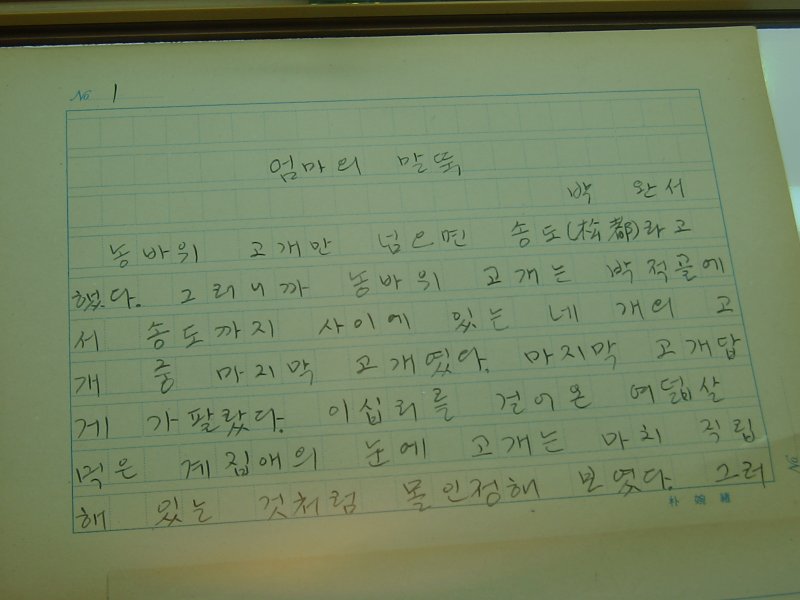 No 1
엄마의 말뚝
박 완서
농바위 고개만 넘으면 송도(松都)라고
했다. 그러니까 농바위 고개는 박적골에
서 송도까지 사이에 있는 네 개의 고
개 중 마지막 고개였다. 마지막 고개답
게 가팔랐다. 이십리를 걸어온 여덟살
먹은 계집애의 눈에 고개는 마치 직립
해 있는 것처럼 몰인정해 보였다. 그러
朴 婉 緖
No